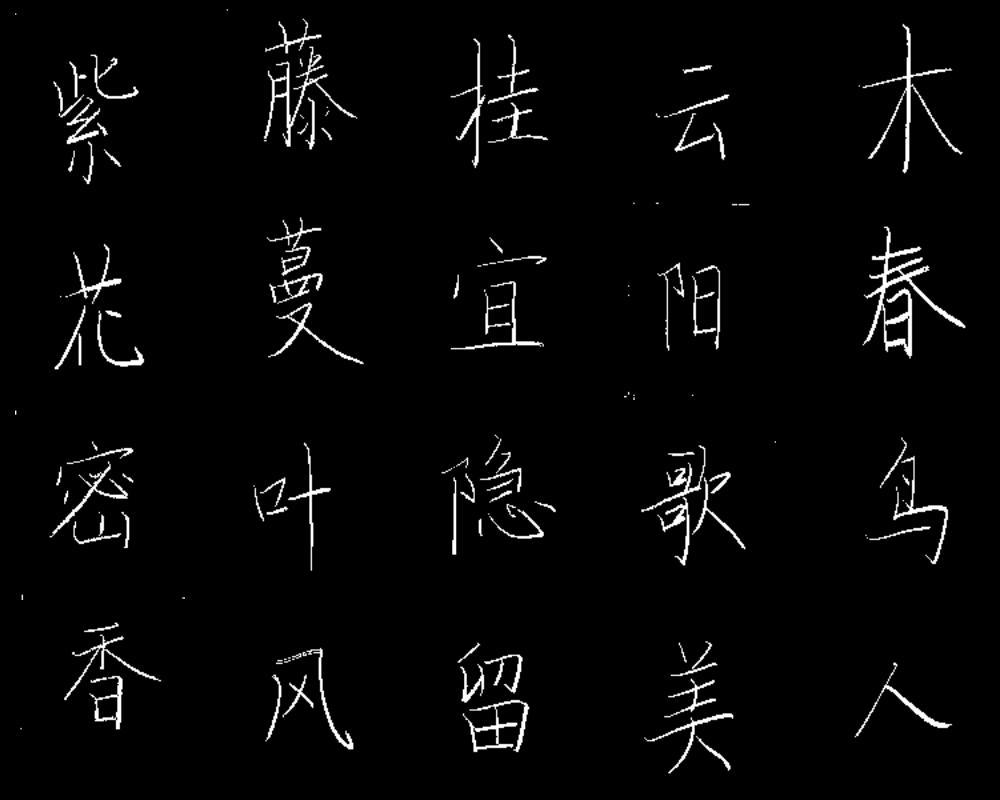 紫藤桂云木
花蔓宜阳春
密叶隐歌鸟
香风留美人